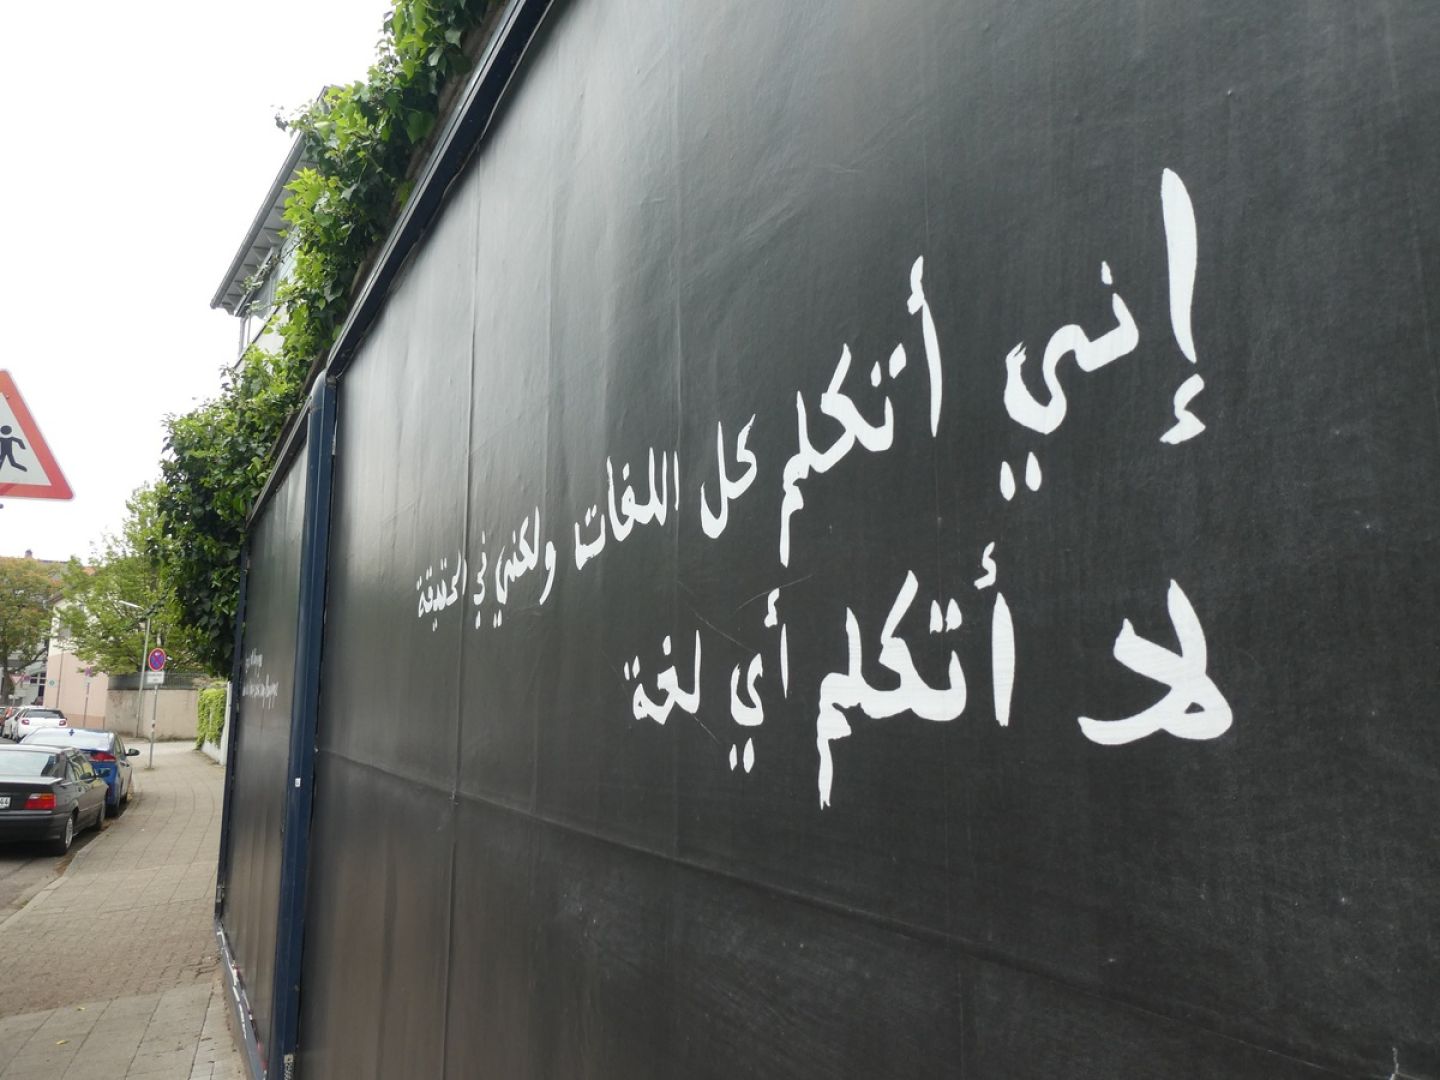 إنني أتكلم كل اللغات ولكنني في الحقيقة
لا أتكلم أي لغة